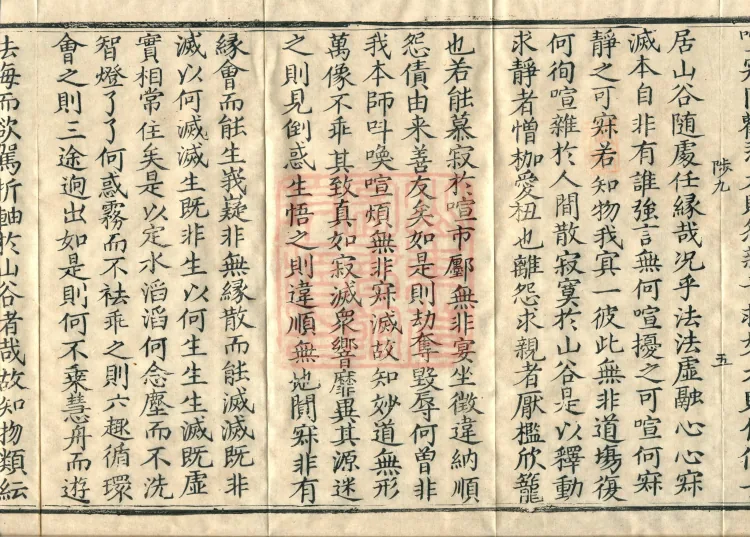 陟九
五
居山谷随處任緣哉况乎法法虛融心心寂
滅本自非有誰強言無何喧擾之可喧何寂
靜之可寂若知物我㝠一彼此無非道塲復
何徇喧雜於人間散寂寞於山谷是以釋動
求靜者憎枷愛杻也離怨求親者厭檻欣籠
也若能慕寂於喧市鄽無非宴坐徵違納順
怨債由来善友矣如是則劫奪毀辱何曾非
我本師叫喚喧煩無非寂滅故知妙道無形
萬像不乖其致真如寂滅衆響靡異其源迷
之則見倒惑生悟之則違順無地闃寂非有
緣會而能生峩嶷非無緣散而能滅滅既非
滅以何滅滅生既非生以何生生生滅既虛
實相常住矣是以定水滔滔何念塵而不洗
智燈了了何惑霧而不祛乖之則六趣循環
會之則三途逈出如是則何不乘慧舟而遊
法海而欲駕折軸於山谷者哉故知物類紜